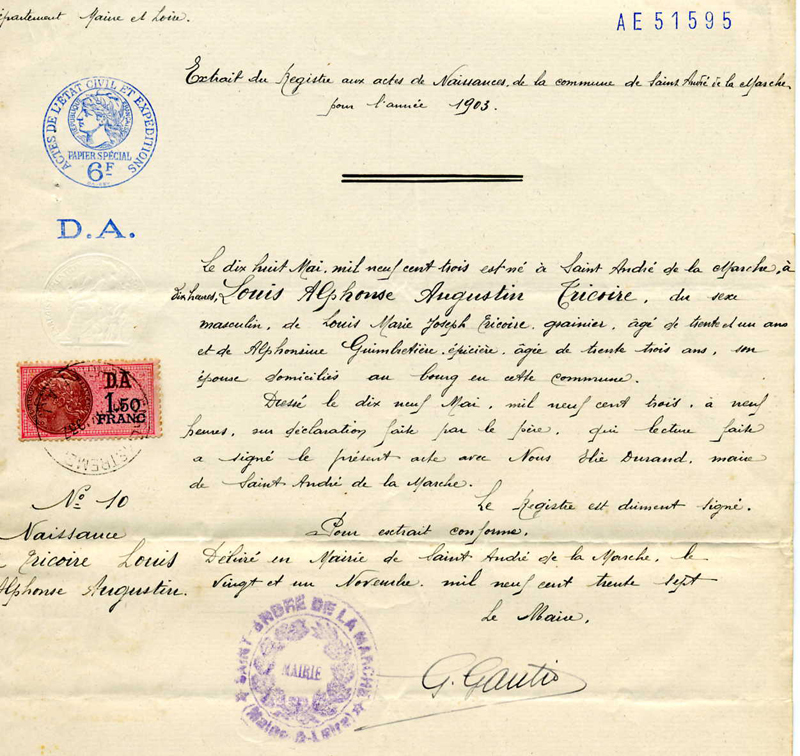 Département Maine et Loire.
AE51595
Extrait du Registre aux actes de Naissances, de la commune de Saint André de la Marche,
pour l'année 1903.
ACTES DE L'ETAT CIVIL ET EXPEDITIONS
PAPIER SPÉCIAL
6F
D.A.
Le dix huit Mai, mil neuf cent trois est né à Saint André de la Marche, à
dix heures, Louis Alphonse Augustin Tricoire, du sexe
masculin, de Louis Marie Joseph Tricoire, grainier, âgé de trente et un ans
et de Alphonsine Guimbretière, épicière, âgée de trente trois ans, son
épouse domiciliés au bourg en cette commune.
Dressé le dix neuf Mai, mil neuf cent trois, à neuf
heures, sur déclaration faite par le père, qui lecture faite
a signé le présent acte avec Nous Elie Durand, maire
de Saint André de la Marche.
DA
1,50
FRANC
Le Registre est dûment signé.
Pour extrait conforme.
Nº 10
Naissance
Tricoire Louis
Alphonse Augustin.
Délivré en Mairie de Saint André de la Marche, le
vingt et un Novembre, mil neuf cent trente sept
Le Maire,
SAINT-ANDRÉ DE LA MARCHE
MAIRIE
(Maine-&-Loire)
G. Gautio